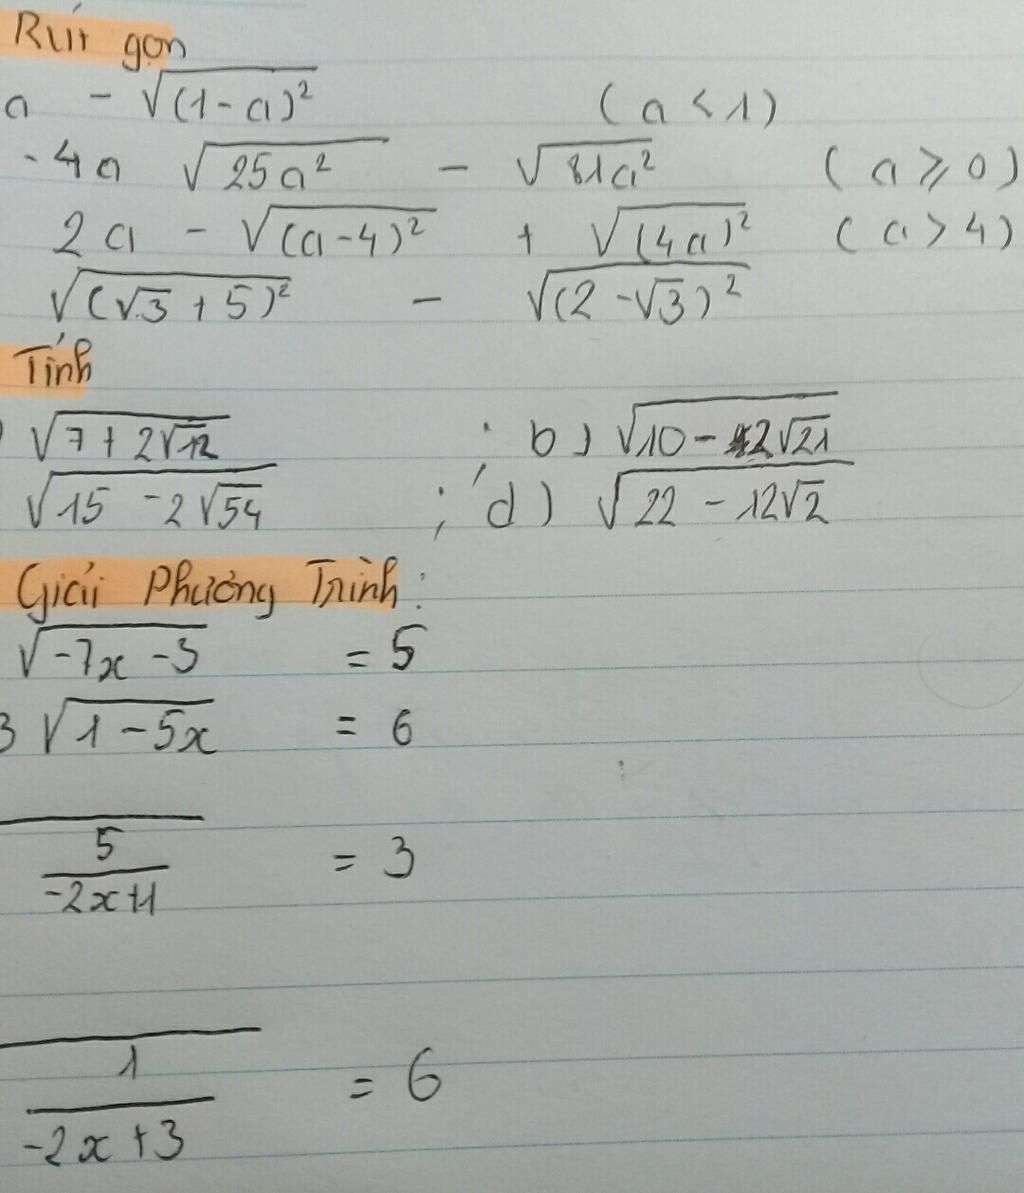 Rút gọn
a - √(1-a)² (a < 1)
-4a √25a² - √81a² (a ≥ 0)
2a - √(a-4)² + √(4a)² (a > 4)
√(√3 + 5)² - √(2-√3)²
Tính
) √7 + 2√12 ; b) √10 - 2√21
√15 - 2√54 ; d) √22 - 12√2
Giải Phương Trình:
√-7x - 3 = 5
3 √1 - 5x = 6
5
= 3
-2x+1
1
= 6
-2x + 3